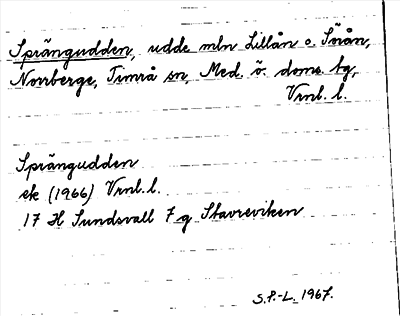 Sprängudden, udde mln Lillån o. Sörån,
Norrberge, Timrå sn, Med. ö. doms. tg,
Vrnl. l.
Sprängudden
ek (1966) Vrnl. l.
17 H Sundsvall 7 g Stavreviken
S.P.-L. 1967.